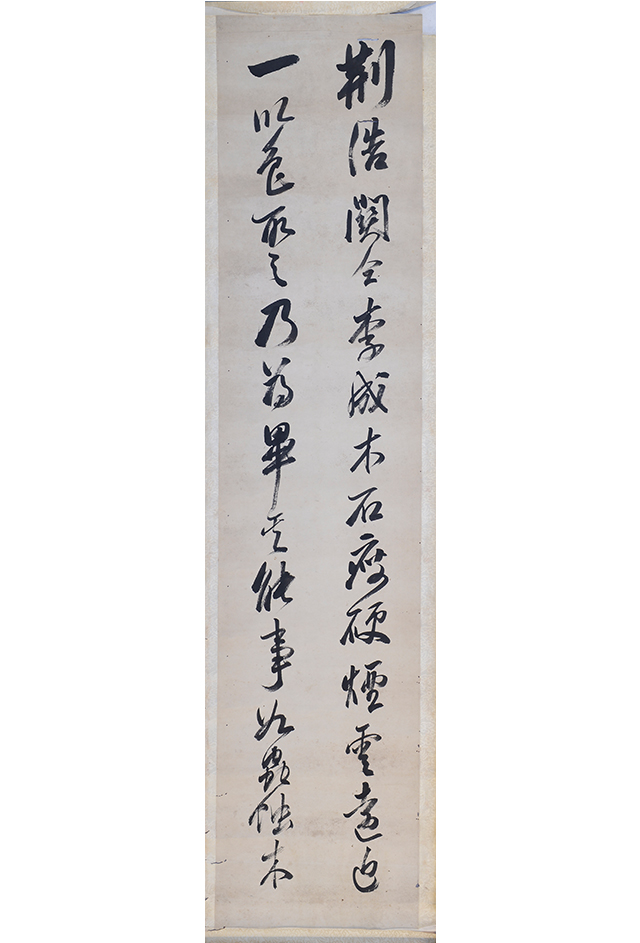 荆浩關仝李成木石瘦硬煙雲遠近
一以色取之乃為畢其能事如蟲蝕木